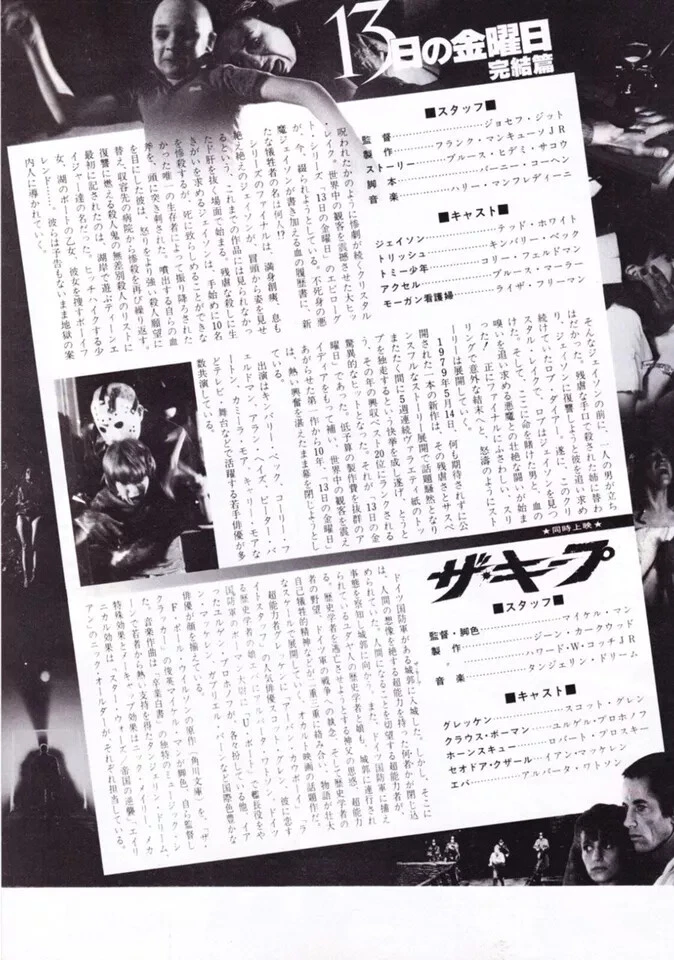 13日の金曜日
完結篇
■スタッフ■
監督………ジョセフ・ジット
製作………フランク・マンキューソJR
ストーリー………ブルース・ヒデミ・サコウ
脚本………バーニー・コーヘン
音楽………ハリー・マンフレディーニ
■キャスト■
ジェイソン………テッド・ホワイト
トリッシュ………キンバリー・ベック
トミー少年………コリー・フェルドマン
アクセル………ブルース・マーラー
モーガン看護婦………ライザ・フリーマン
呪われたかのように惨劇が続くクリスタル
・レイク。世界中の観客を震撼させた大ヒッ
ト・シリーズ、「13日の金曜日」のエピローグ
が、今、綴られようとしている。不死身の悪
魔ジェイソンが書き加える血の履歴書に、新
たな犠牲者の名は何人!?
シリーズのファイナルは、満身創痍、息も
絶え絶えのジェイソンが、冒頭から姿を見せ
るという、これまでの作品には見られなかっ
たド肝を抜く場面で始まる。残虐な殺しに生
きがいを求めるジェイソンは、手始めに10名
を惨殺するが、死に致らしめることができな
かった唯一の生存者によって振り降ろされた
斧を、頭に突き刺された。噴出する自らの血
を目にした彼は、怒りをより強い殺人願望に
替え、収容先の病院から惨殺を再び繰り返す。
復讐に燃える殺人鬼の無差別殺人のリストに
最初に記されたのは、湖岸で遊ぶティーンエ
イジャー達の名だった。ヒッチハイクする少
女、湖のボートの乙女、彼女を捜すボーイフ
レンド……彼らは予告もないまま地獄の案
内人に導かれていく。
そんなジェイソンの前に、一人の男が立ち
はだかった。残虐な手口で殺された姉に替わ
り、ジェイソンに復讐しようと彼を追い求め
続けていたロブ・ダイヤー。遂に、このクリ
スタル・レイクで、ロブはジェイソンを見つ
けた。そして、ここに命を賭けた男と、血の
嗅いを追い求める悪魔との壮絶な闘いが始ま
った/ 正にファイナルにふさわしい、スリ
リングで意外な結末へと、怒濤のようにスト
ーリーは展開していく。
1979年5月14日。何も期待されずに公
開された一本の新作は、その残虐さとサスペ
ンスフルなストーリー展開で話題騒然となり
またたく間に5週連続ヴァラエティ紙のトッ
プを独走するという快挙を成し遂げ、とうと
う、その年の興収ベスト20位にランクされる
驚異的なヒットとなった。それが、「13日の金
曜日」であった。低予算の製作費を抜群のア
イディアをもって補い、世界中の観客を震え
あがらせた第一作から10年、「13日の金曜日」
は、熱い興奮を湛えたまま幕を閉じようとし
ている。
出演はキンバリー・ベック、コーリー・フ
ェルドマン、アラン・ヘイズ、ピーター・バ
ートン、カミーラ・モア、キャリー・モアな
どテレビ・舞台などで活躍する若手俳優が多
数共演している。
★同時上映★
ザ・キープ
■スタッフ■
監督・脚色………マイケル・マン
製作………ジーン・カークウッド
〃………ハワード・W・コッチJR
音楽………タンジェリン・ドリーム
■キャスト■
グレッケン………スコット・グレン
クラウス・ボーマン………ユルゲル・プロホノフ
ホーンスキュー………ロバート・プロスキー
セオドア・クザール………イアン・マッケレン
エバ………アルバータ・ワトソン
ドイツ国防軍がある城郭に入城した。しかし、そこに
は、人間の想像を絶する超能力を持った何者かが閉じ込
められていた。人間になることを切望する超能力者が、
事態を察知し城郭に向かう。また、ドイツ国防軍に捕え
られているユダヤ人の歴史学者と娘も、城郭に連行され
る。歴史学者を逃亡させようとする神父の思惑、超能力
者の野望、ドイツ軍の戦争への執念、そして歴史学者の
自己犠牲的精神などが二重三重に絡み合い、物語が壮大
なスケールで展開していく、オカルト映画の話題作だ。
超能力者グレッケンに「アーバン・カウボーイ」「ラ
イトスタッフ」の人気俳優スコット・グレン、彼に恋す
る歴史学者の娘エバにアルバータ・ワトソン、ドイツ
国防軍のボーマン大尉に「U・ボート」で艦長役をや
ったユルゲン・プロホノフが、各々扮している他、イア
ン・マッケレン、ガブリエル・バーンなど国際色豊かな
俳優が顔を揃えている。
F・ポール・ウィルソンの原作(角川文庫)を、「ザ・
クラッカー」の俊英マイケル・マンが脚色、自ら監督し
た。音楽作曲は「卒業白書」の独特のミュージック・シ
ーンで若者から熱い支持を得たタンジェリン・ドリーム、
特殊効果とメーキャップ効果はニック・メイリー、メカ
ニカル効果は、「スター・ウォーズ/帝国の逆襲」「エイリ
アン」のニック・オールダーが、それぞれ担当している。